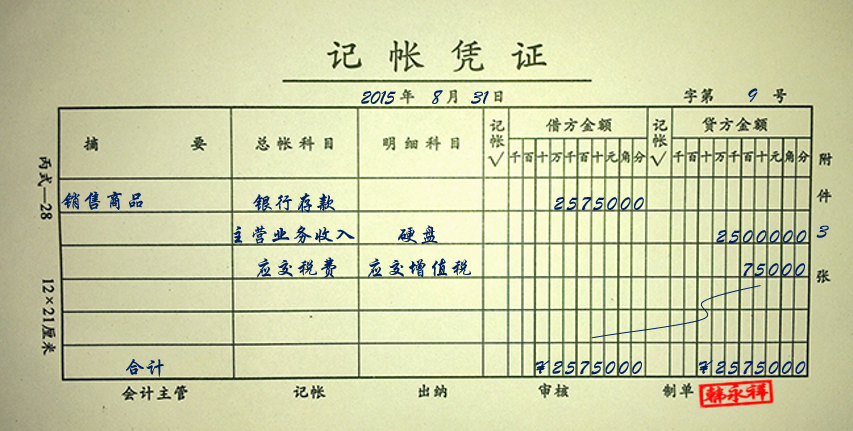 记帐凭证
2015年 8月 31日 字第 9 号
摘要 总帐科目 明细科目 记帐√ 借方金额 记帐√ 贷方金额
千百十万千百十元角分 千百十万千百十元角分
销售商品 银行存款 2575000
主营业务收入 硬盘 2500000
应交税费 应交增值税 75000
合计 ¥2575000 ¥2575000
会计主管 记帐 出纳 审核 制单 韩永祥
附件 3 张
丙式—28 12×21厘米